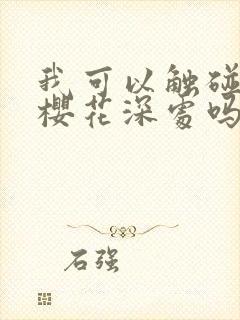 我可以触碰
樱花深处吗
石强